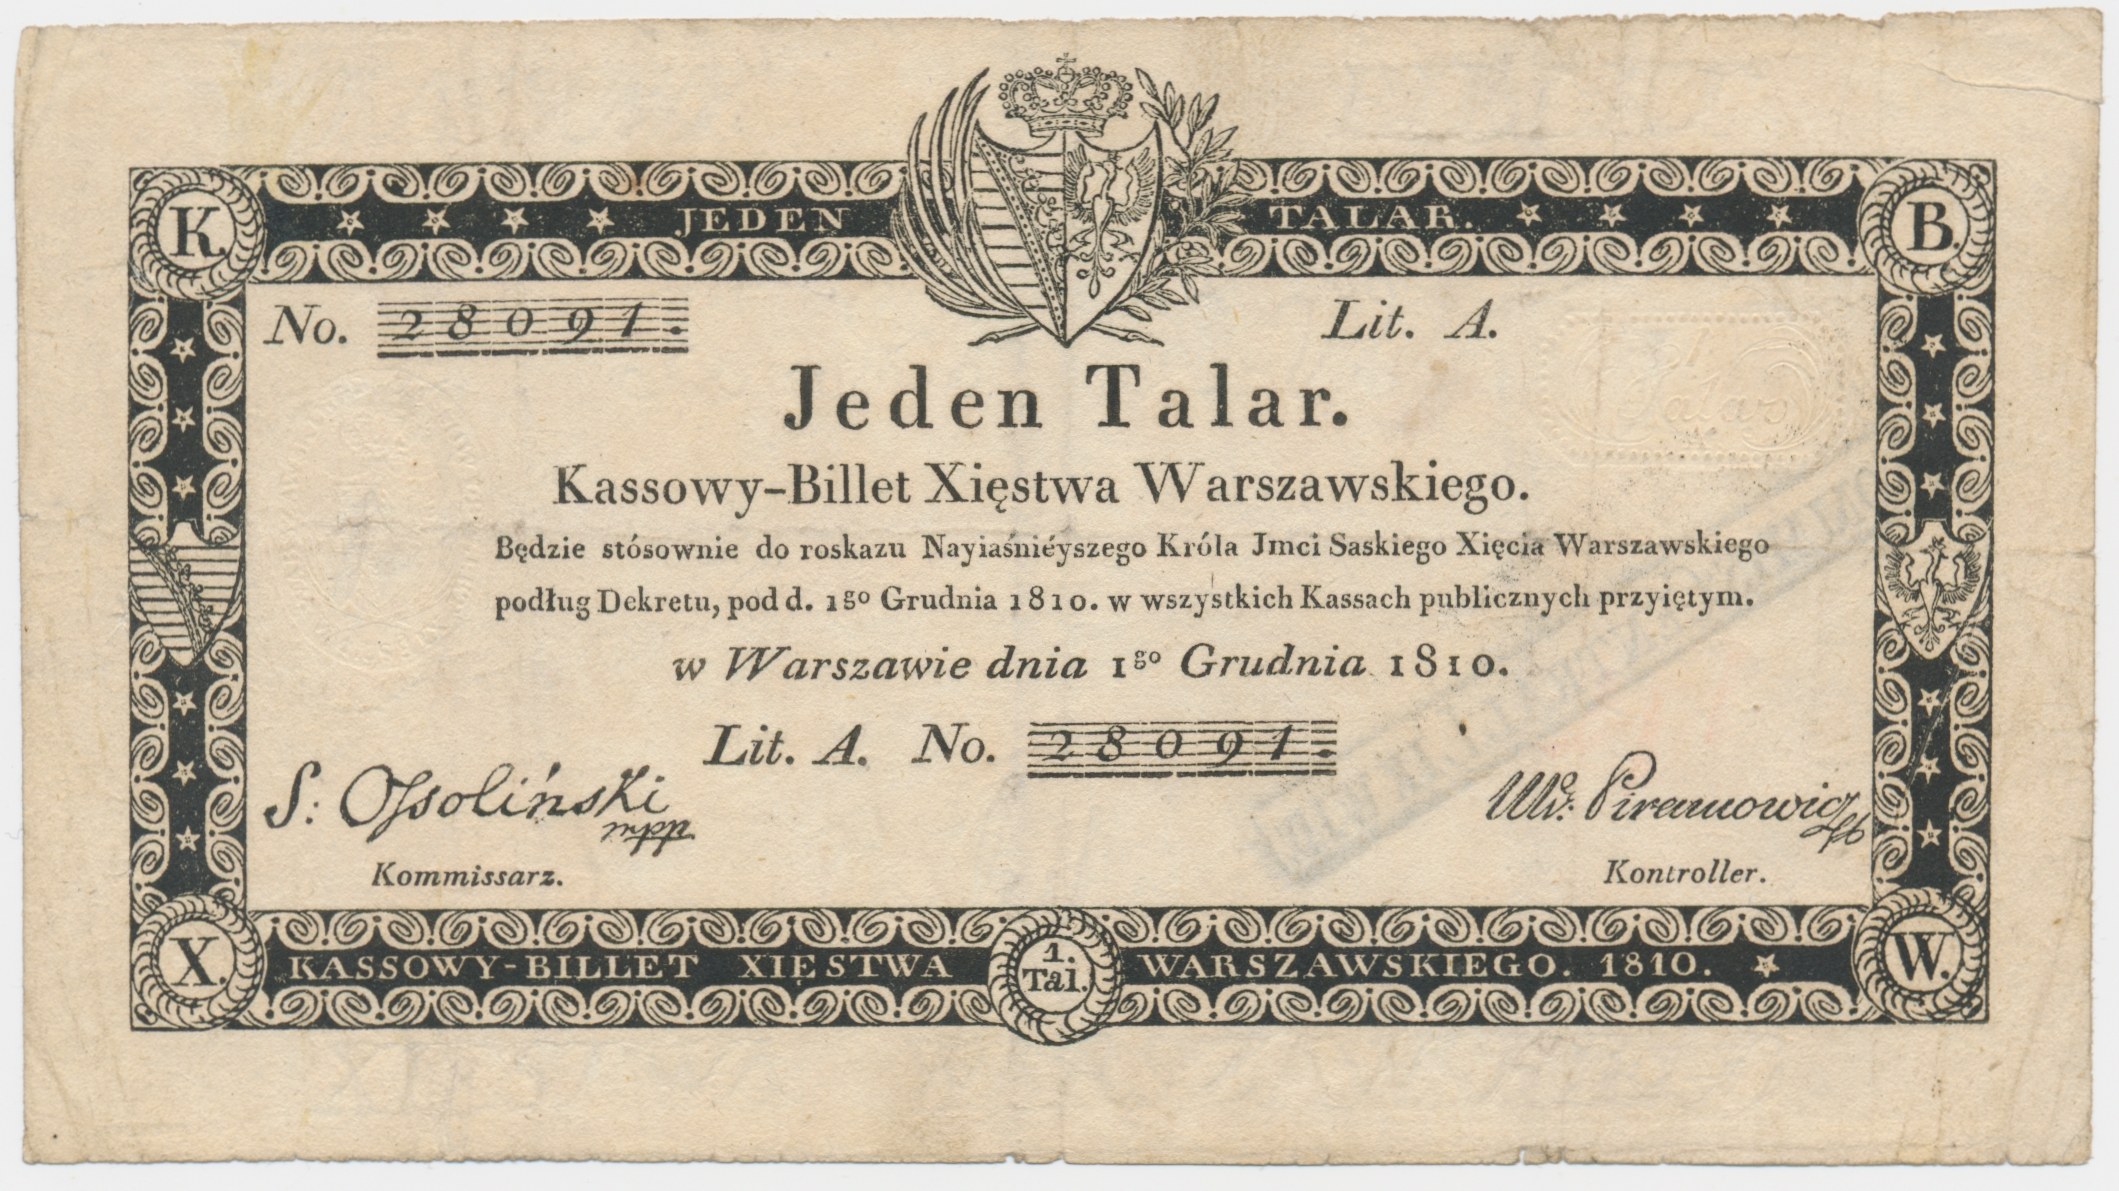 K. JEDEN TALAR. B.
No. 28091. Lit. A.
Jeden Talar.
Kassowy-Billet Xięstwa Warszawskiego.
Będzie stósownie do roskazu Nayiaśniéyszego Króla Jmci Saskiego Xięcia Warszawskiego
podług Dekretu, pod d. 1go Grudnia 1810. w wszystkich Kassach publicznych przyiętym.
w Warszawie dnia 1go Grudnia 1810.
Lit. A. No. 28091.
S: Ossoliński
mpp
Kommissarz.
Piramowicz
Kontroller.
X. KASSOWY-BILLET XIĘSTWA 1. Tal. WARSZAWSKIEGO. 1810. W.